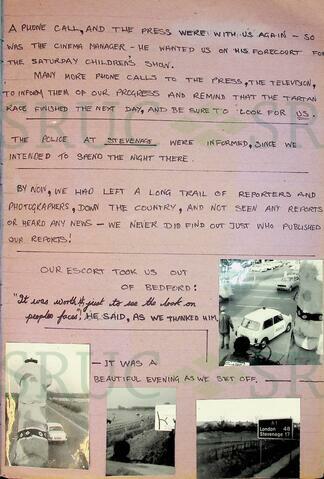 A PHONE CALL, AND THE PRESS WERE WITH US AGAIN - SO
WAS THE CINEMA MANAGER - HE WANTED US ON HIS FORECOURT FOR
THE SATURDAY CHILDREN'S SHOW.
MANY MORE PHONE CALLS TO THE PRESS, THE TELEVISION,
TO INFORM THEM OF OUR PROGRESS AND REMIND THAT THE TARTAN
RACE FINISHED THE NEXT DAY, AND BE SURE TO LOOK FOR US.
THE POLICE AT STEVENAGE WERE INFORMED, SINCE WE
INTENDED TO SPEND THE NIGHT THERE.
BY NOW, WE HAD LEFT A LONG TRAIL OF REPORTERS AND
PHOTOGRAPHERS, DOWN THE COUNTRY, AND NOT SEEN ANY REPORTS
OR HEARD ANY NEWS - WE NEVER DID FIND OUT JUST WHO PUBLISHED
OUR REPORTS!
OUR ESCORT TOOK US OUT
OF BEDFORD:
"It was worth it just to see the look on
peoples faces", HE SAID, AS WE THANKED HIM
- IT WAS A
BEAUTIFUL EVENING AS WE SET OFF. -
A1
London 48
Stevenage 17
SRUC
SRUC
SRUC
SRUC